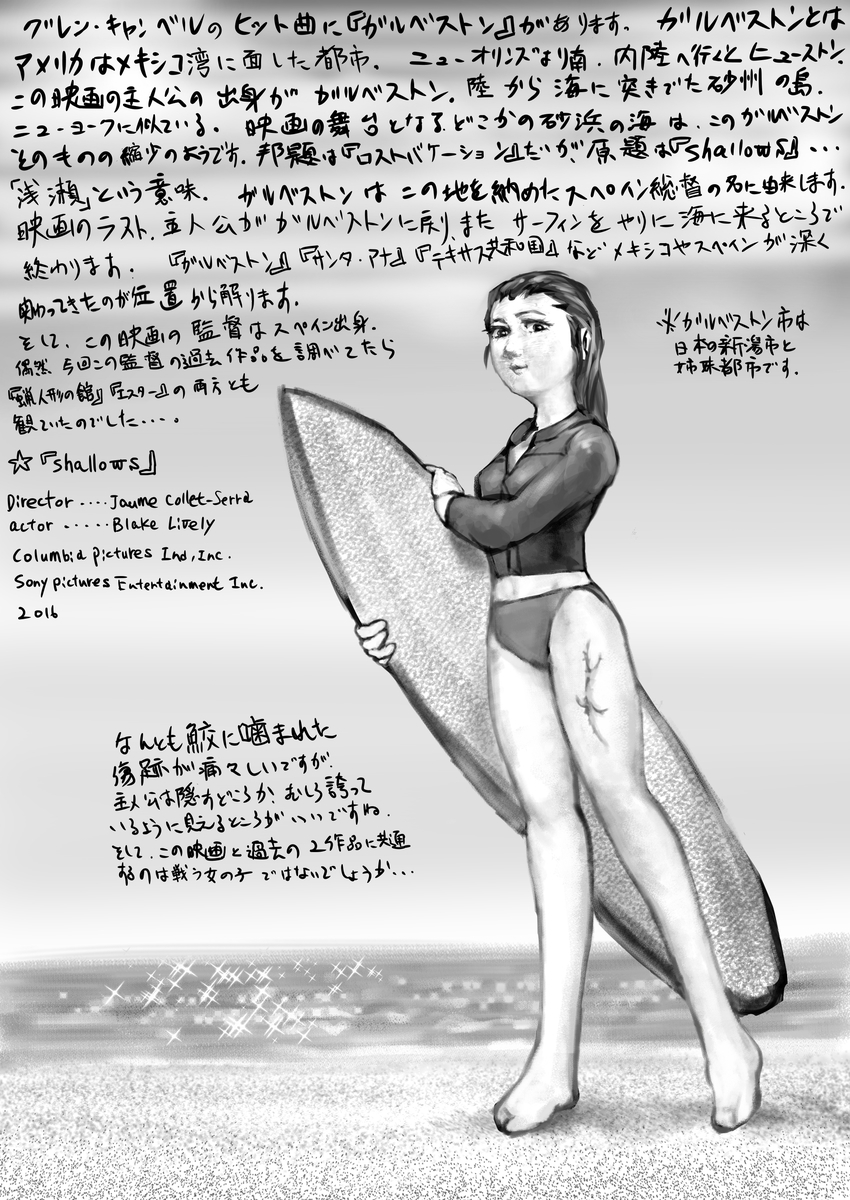 グレン・キャンベルのヒット曲に『ガルベストン』があります。 ガルベストンとは
アメリカはメキシコ湾に面した都市。 ニューオリンズより南、内陸へ行くとヒューストン。
この映画の主人公の出身がガルベストン。陸から海に突きでた砂州の島。
ニューヨークに似ている。 映画の舞台となるどこかの砂浜の海は、このガルベストン
そのものの縮少のようです。邦題は『ロストバケーション』だが、原題は『shallows』・・・
「浅瀬」という意味。 ガルベストンはこの地を納めたスペイン総督の名に由来します。
映画のラスト、主人公がガルベストンに戻り、また サーフィンをやりに海に来るところで
終わります。 『ガルベストン』『サンタ・アナ』『テキサス共和国』などメキシコやスペインが深く
関わってきたのが位置から解ります。
そして、この映画の監督はスペイン出身。
偶然、今回この監督の過去作品を調べてたら
『蝋人形の館』『エスター』の両方とも
観ていたのでした・・・。
※ガルベストン市は
日本の新潟市と
姉妹都市です。
☆『shallows』
Director ....Jaume Collet-Serra
actor .....Blake Lively
Columbia pictures Ind,Inc.
Sony pictures Entertainment Inc.
2016
なんとも鮫に噛まれた
傷跡が痛々しいですが、
主人公は隠すどころか、むしろ誇って
いるように見えるところがいいですね。
そして、この映画と過去の2作品に共通
するのは戦う女の子ではないでしょうか・・・